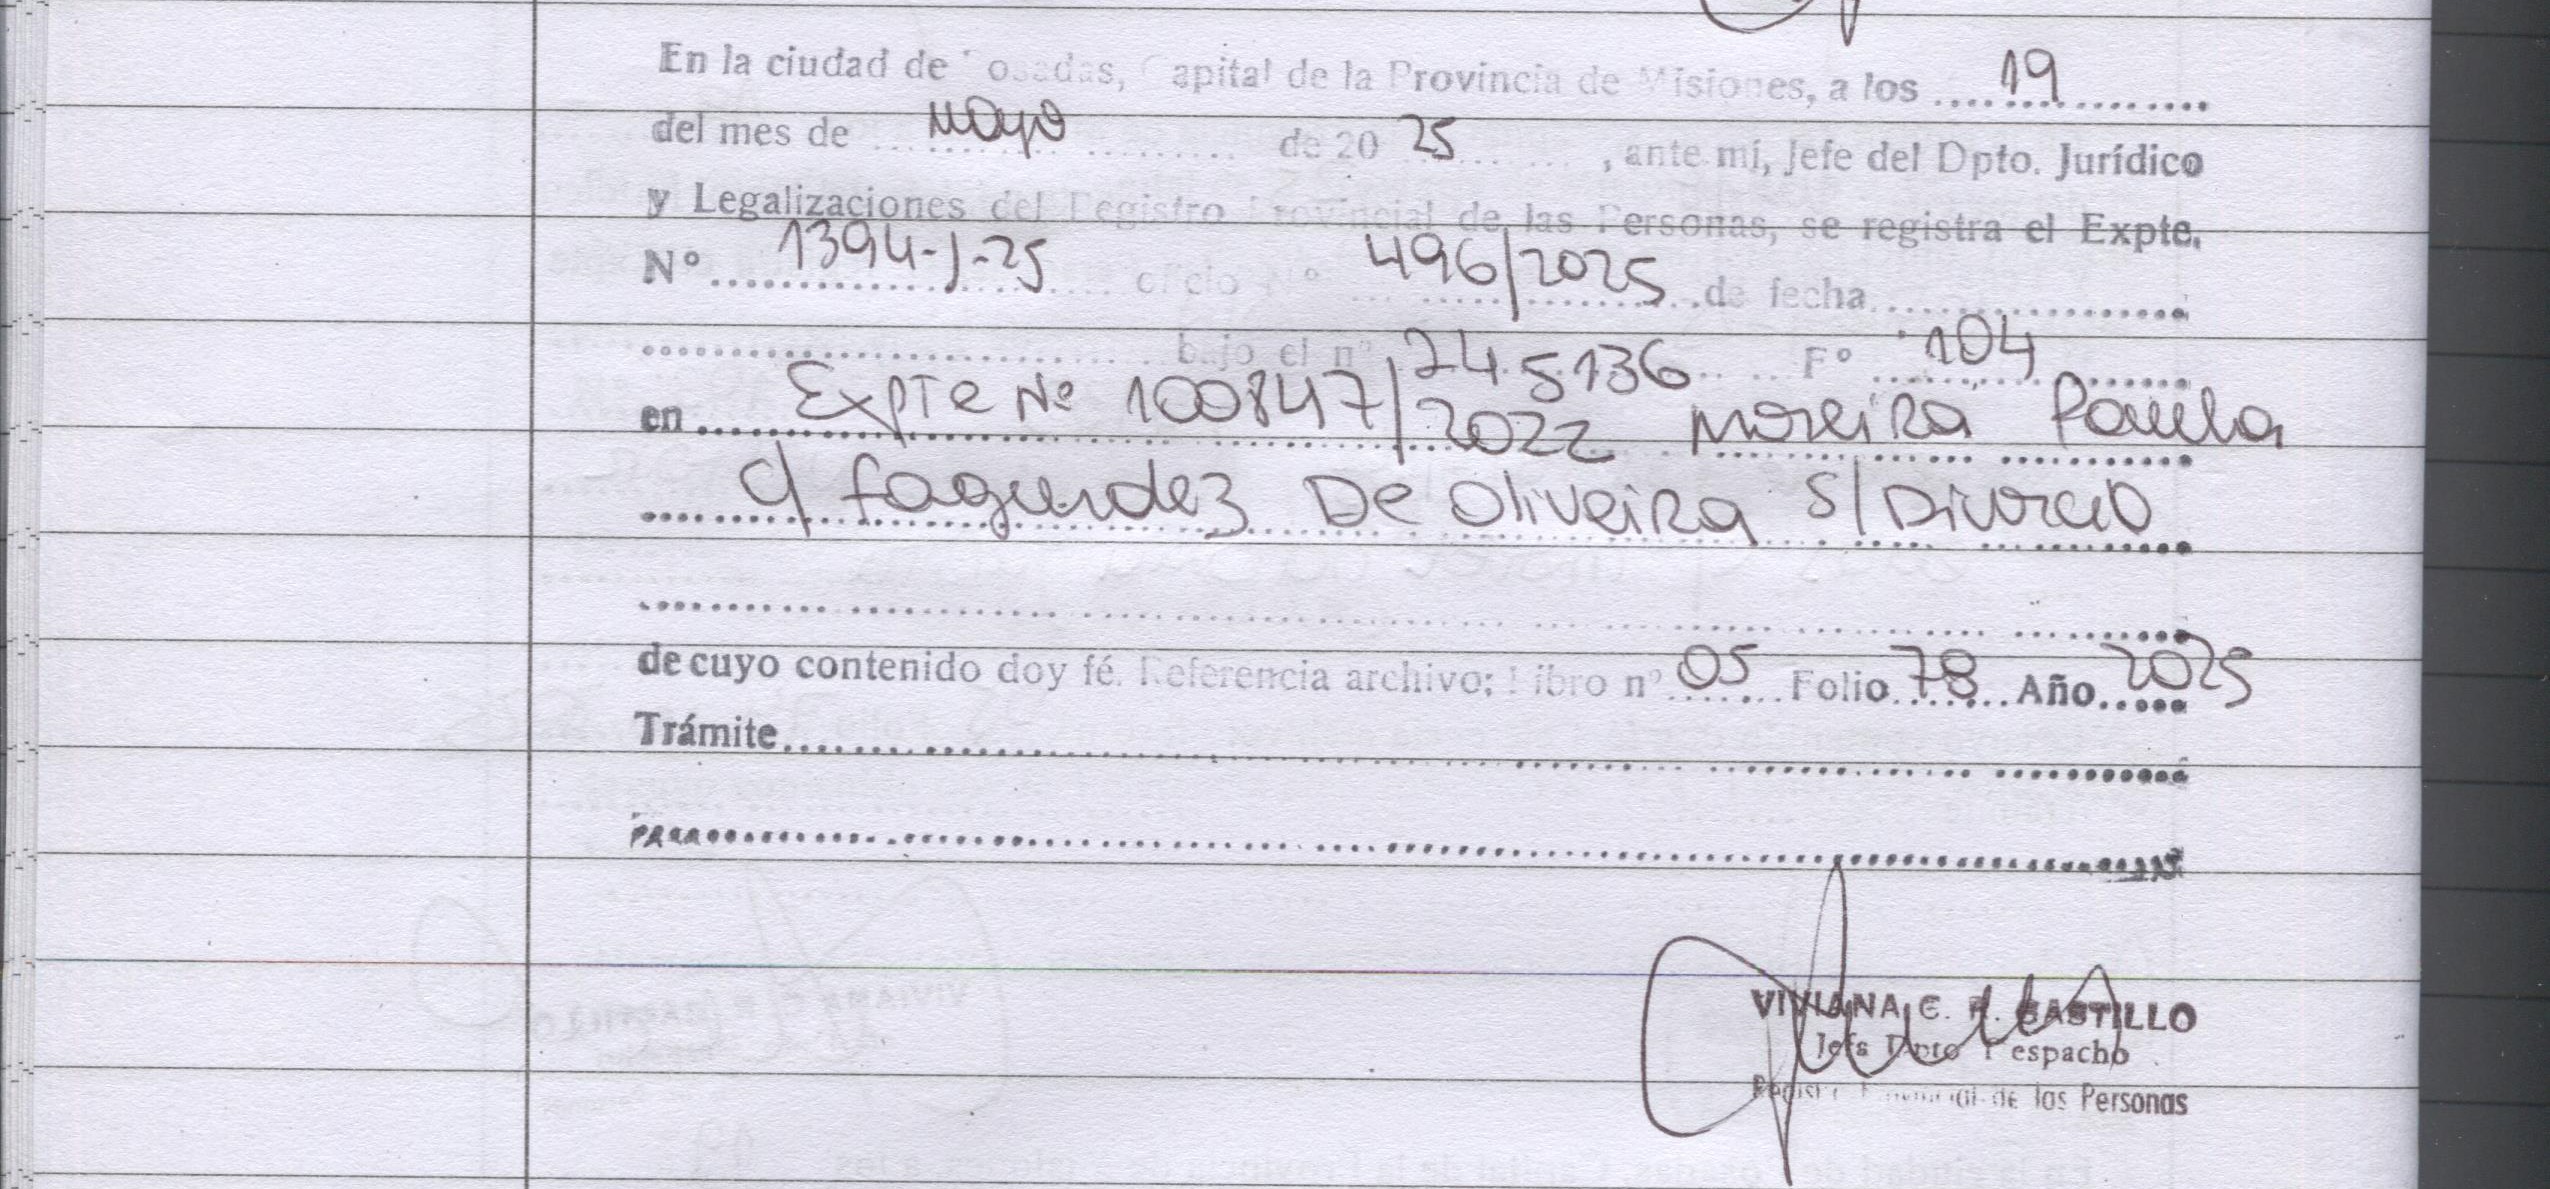 En la ciudad de Posadas, Capital de la Provincia de Misiones, a los .... 19 ........
del mes de ........ mayo ........ de 20 25 ........, ante mí, Jefe del Dpto. Jurídico
y Legalizaciones del Registro Provincial de las Personas, se registra el Expte.
Nº ........ 1394-J-25 ........ oficio Nº ........ 496/2025 ........ de fecha ........
........ bajo el nº 245136 ........ Fº ........ 104 ........
en ........ Expte Nº 100847/2022 Moreira Paula
........ c/ Fagundez De Oliveira S/ Divorcio
........
de cuyo contenido doy fé. Referencia archivo: Libro nº 05 Folio 78 Año 2025
Trámite ........
........
VIVIANA C. R. CASTILLO
Jefe Dpto Despacho
Registro Provincial de las Personas